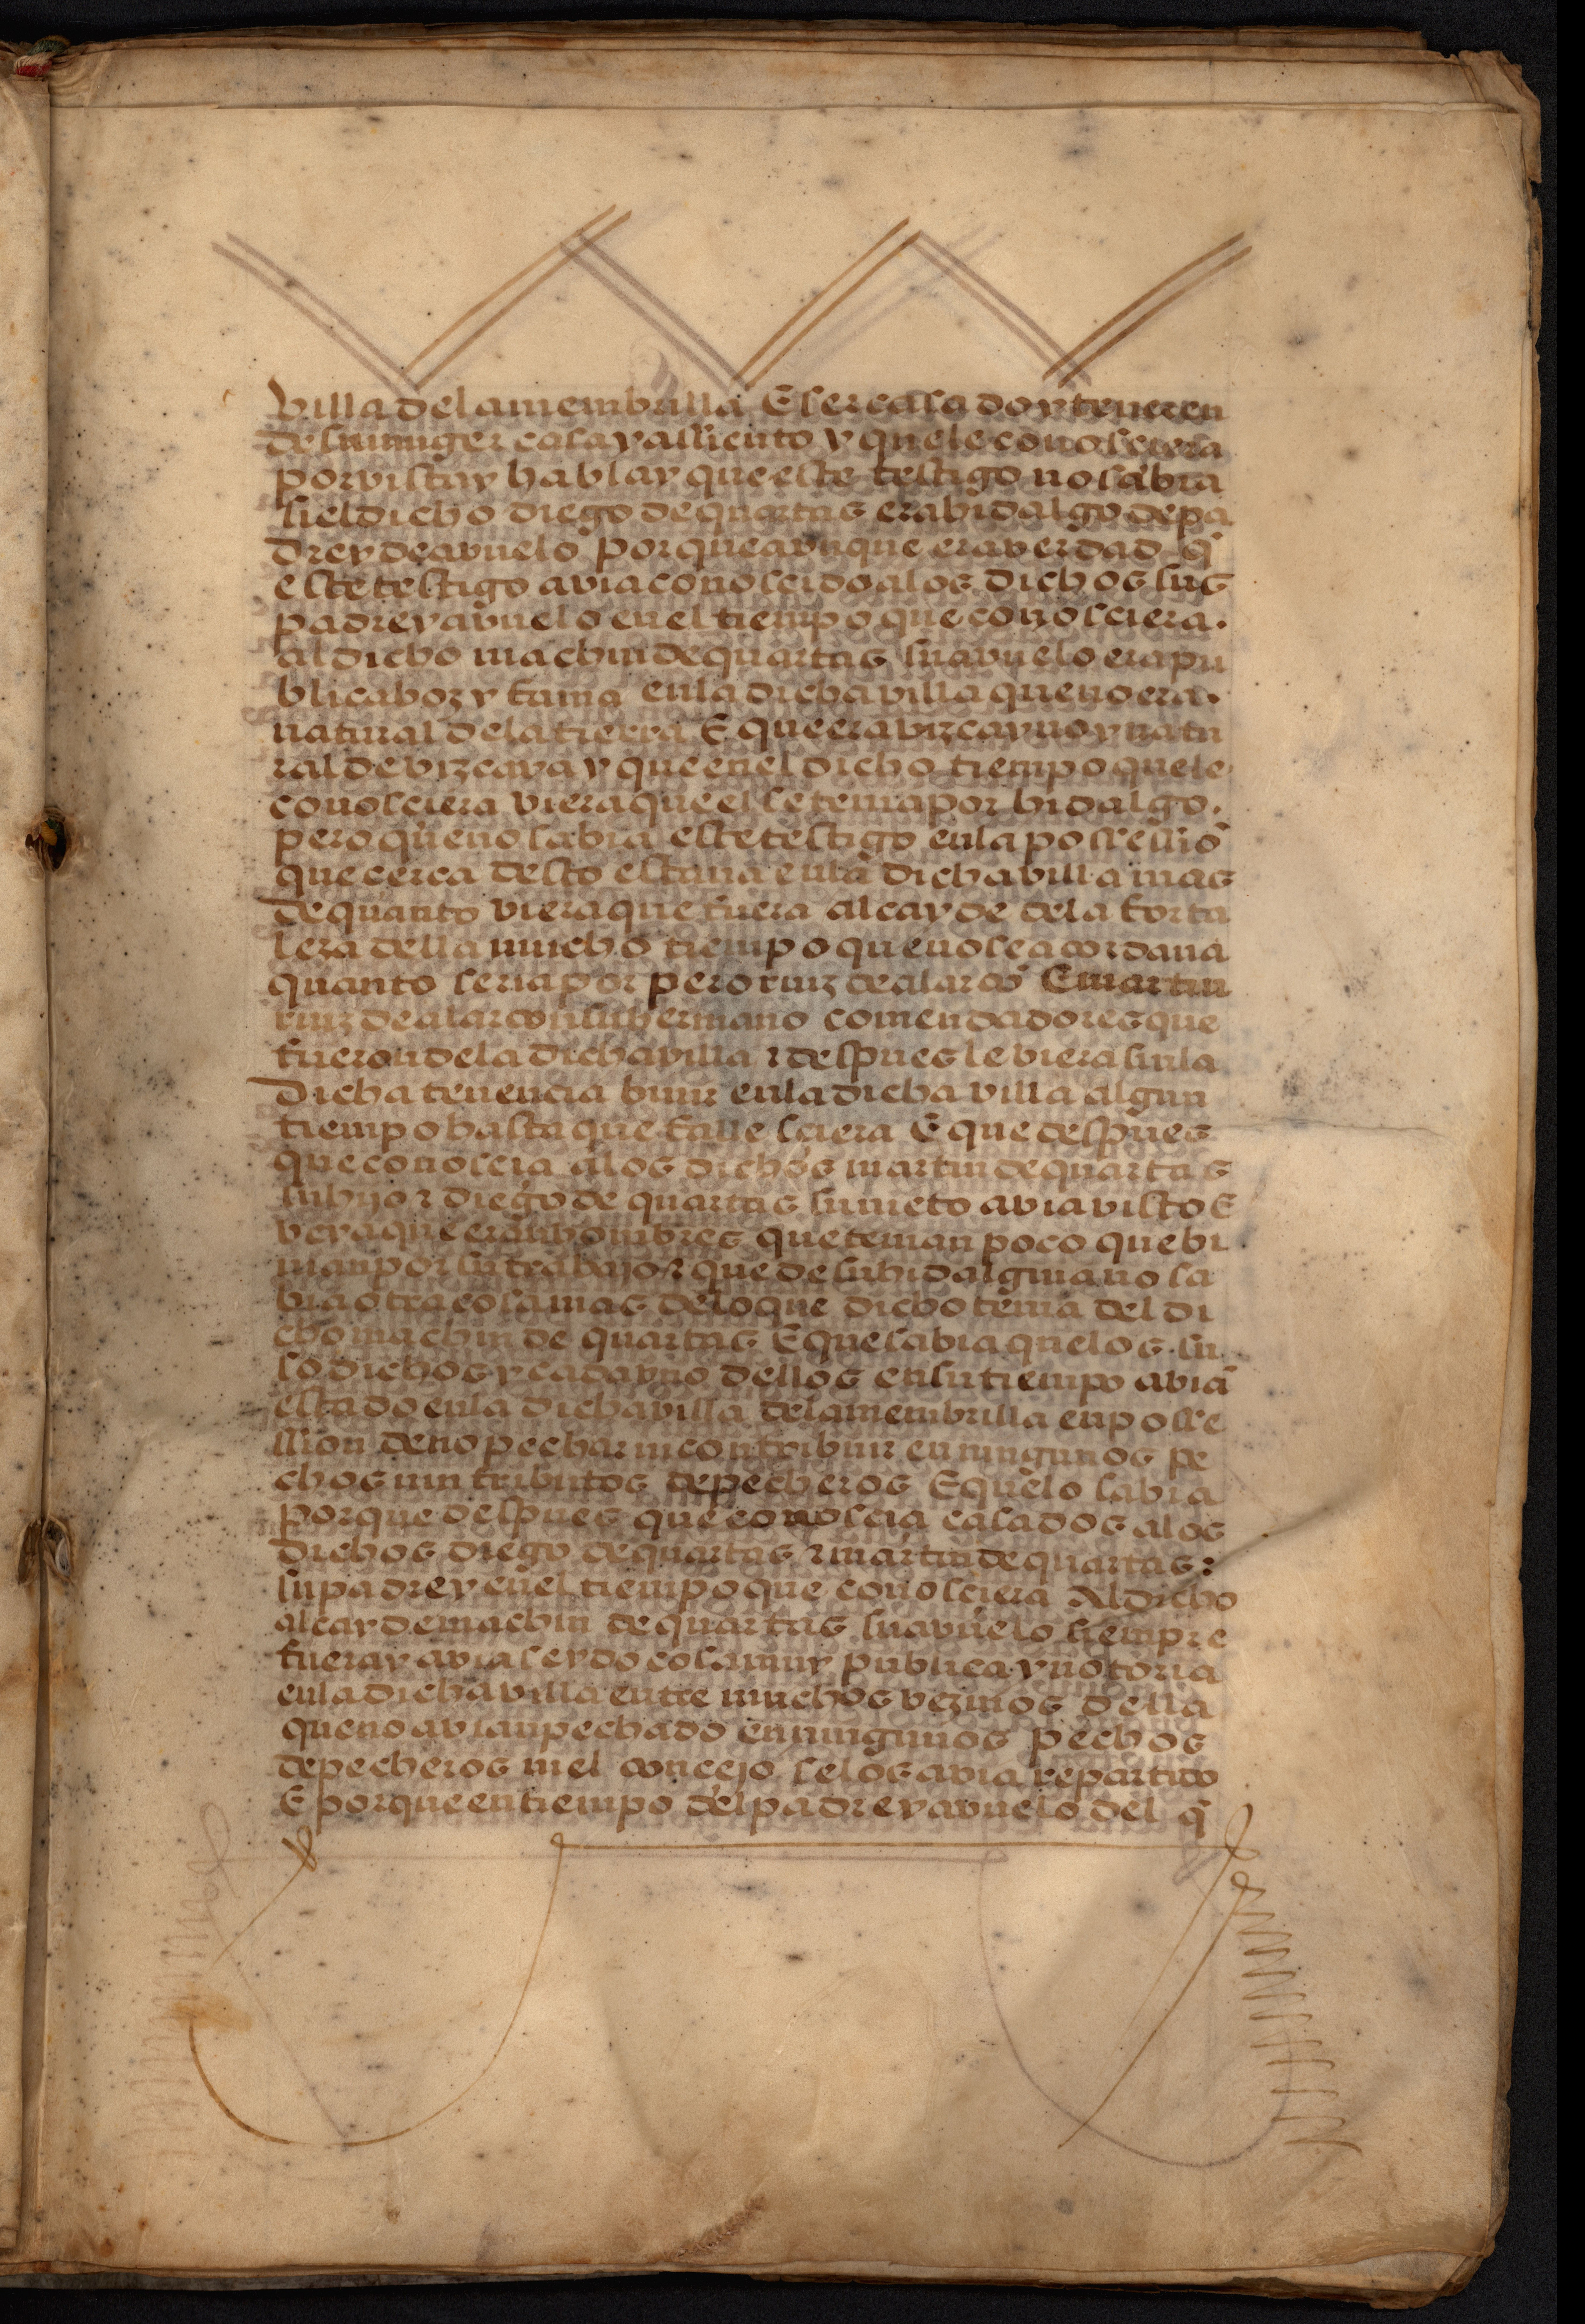 villa dela membrilla E ser casado y tener en
de su muger casa y assiento y que le conosciera
por vista y habla y que este testigo no sabia
si el dicho diego de quartas era hidalgo de pa
dre y de avuelo porque avnque era verdad q̃
este testigo avia conoscido alos dichos sus
padre y avuelo en el tiempo que conosciera.
al dicho machin de quartas su avuelo era pu
blica boz y fama enla dicha villa que no era.
natural dela tierra E que era vizcayno y natu
ral de vizcaya y que en el dicho tiempo que le
conosciera viera que el se tenia por hidalgo.
pero que no sabia este testigo enla possessiõ
que cerca desto estaua enla dicha villa mas
de quanto viera que fuera alcayde dela forta
leza della mucho tiempo que no se acordaua
quanto seria por pero ruiz de alarcõ E martin
ruiz de alarcon su hermano comendadores que
fueron dela dicha villa ⁊ despues le viera sin la
dicha tenencia biuir enla dicha villa algun
tiempo hasta que fallesciera E que despues
que conoscia alos dichos martin de quartas
su hijo ⁊ diego de quartas su nieto avia visto E
veya que eran hombres que tenian poco que bi
uian por su trabajo ⁊ que de su hidalguia no sa
bia otra cosa mas delo que dicho tenia del di
cho machin de quartas E que sabia que los su
so dichos y cada vno dellos en su tiempo aviã
estado enla dicha villa dela membrilla en posse
ssion de no pechar ni contribuir en ningunos pe
chos nin tributos de pecheros E que lo sabia
porque despues que conoscia casados alos
dichos diego de quartas ⁊ martin de quartas:
su padre y en el tiempo que conosciera Al dicho
alcayde machin de quartas su avuelo siempre
fuera y avia seydo cosa muy publica y notoria
enla dicha villa entre muchos vezinos della
que no avian pechado en ningunos pechos
de pecheros ni el concejo se los avia repartido
E porque en tiempo del padre y avuelo del q̃